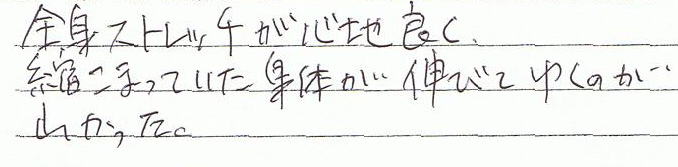 全身ストレッチが心地良く、
縮こまっていた身体が伸びてゆくのが
分かった。